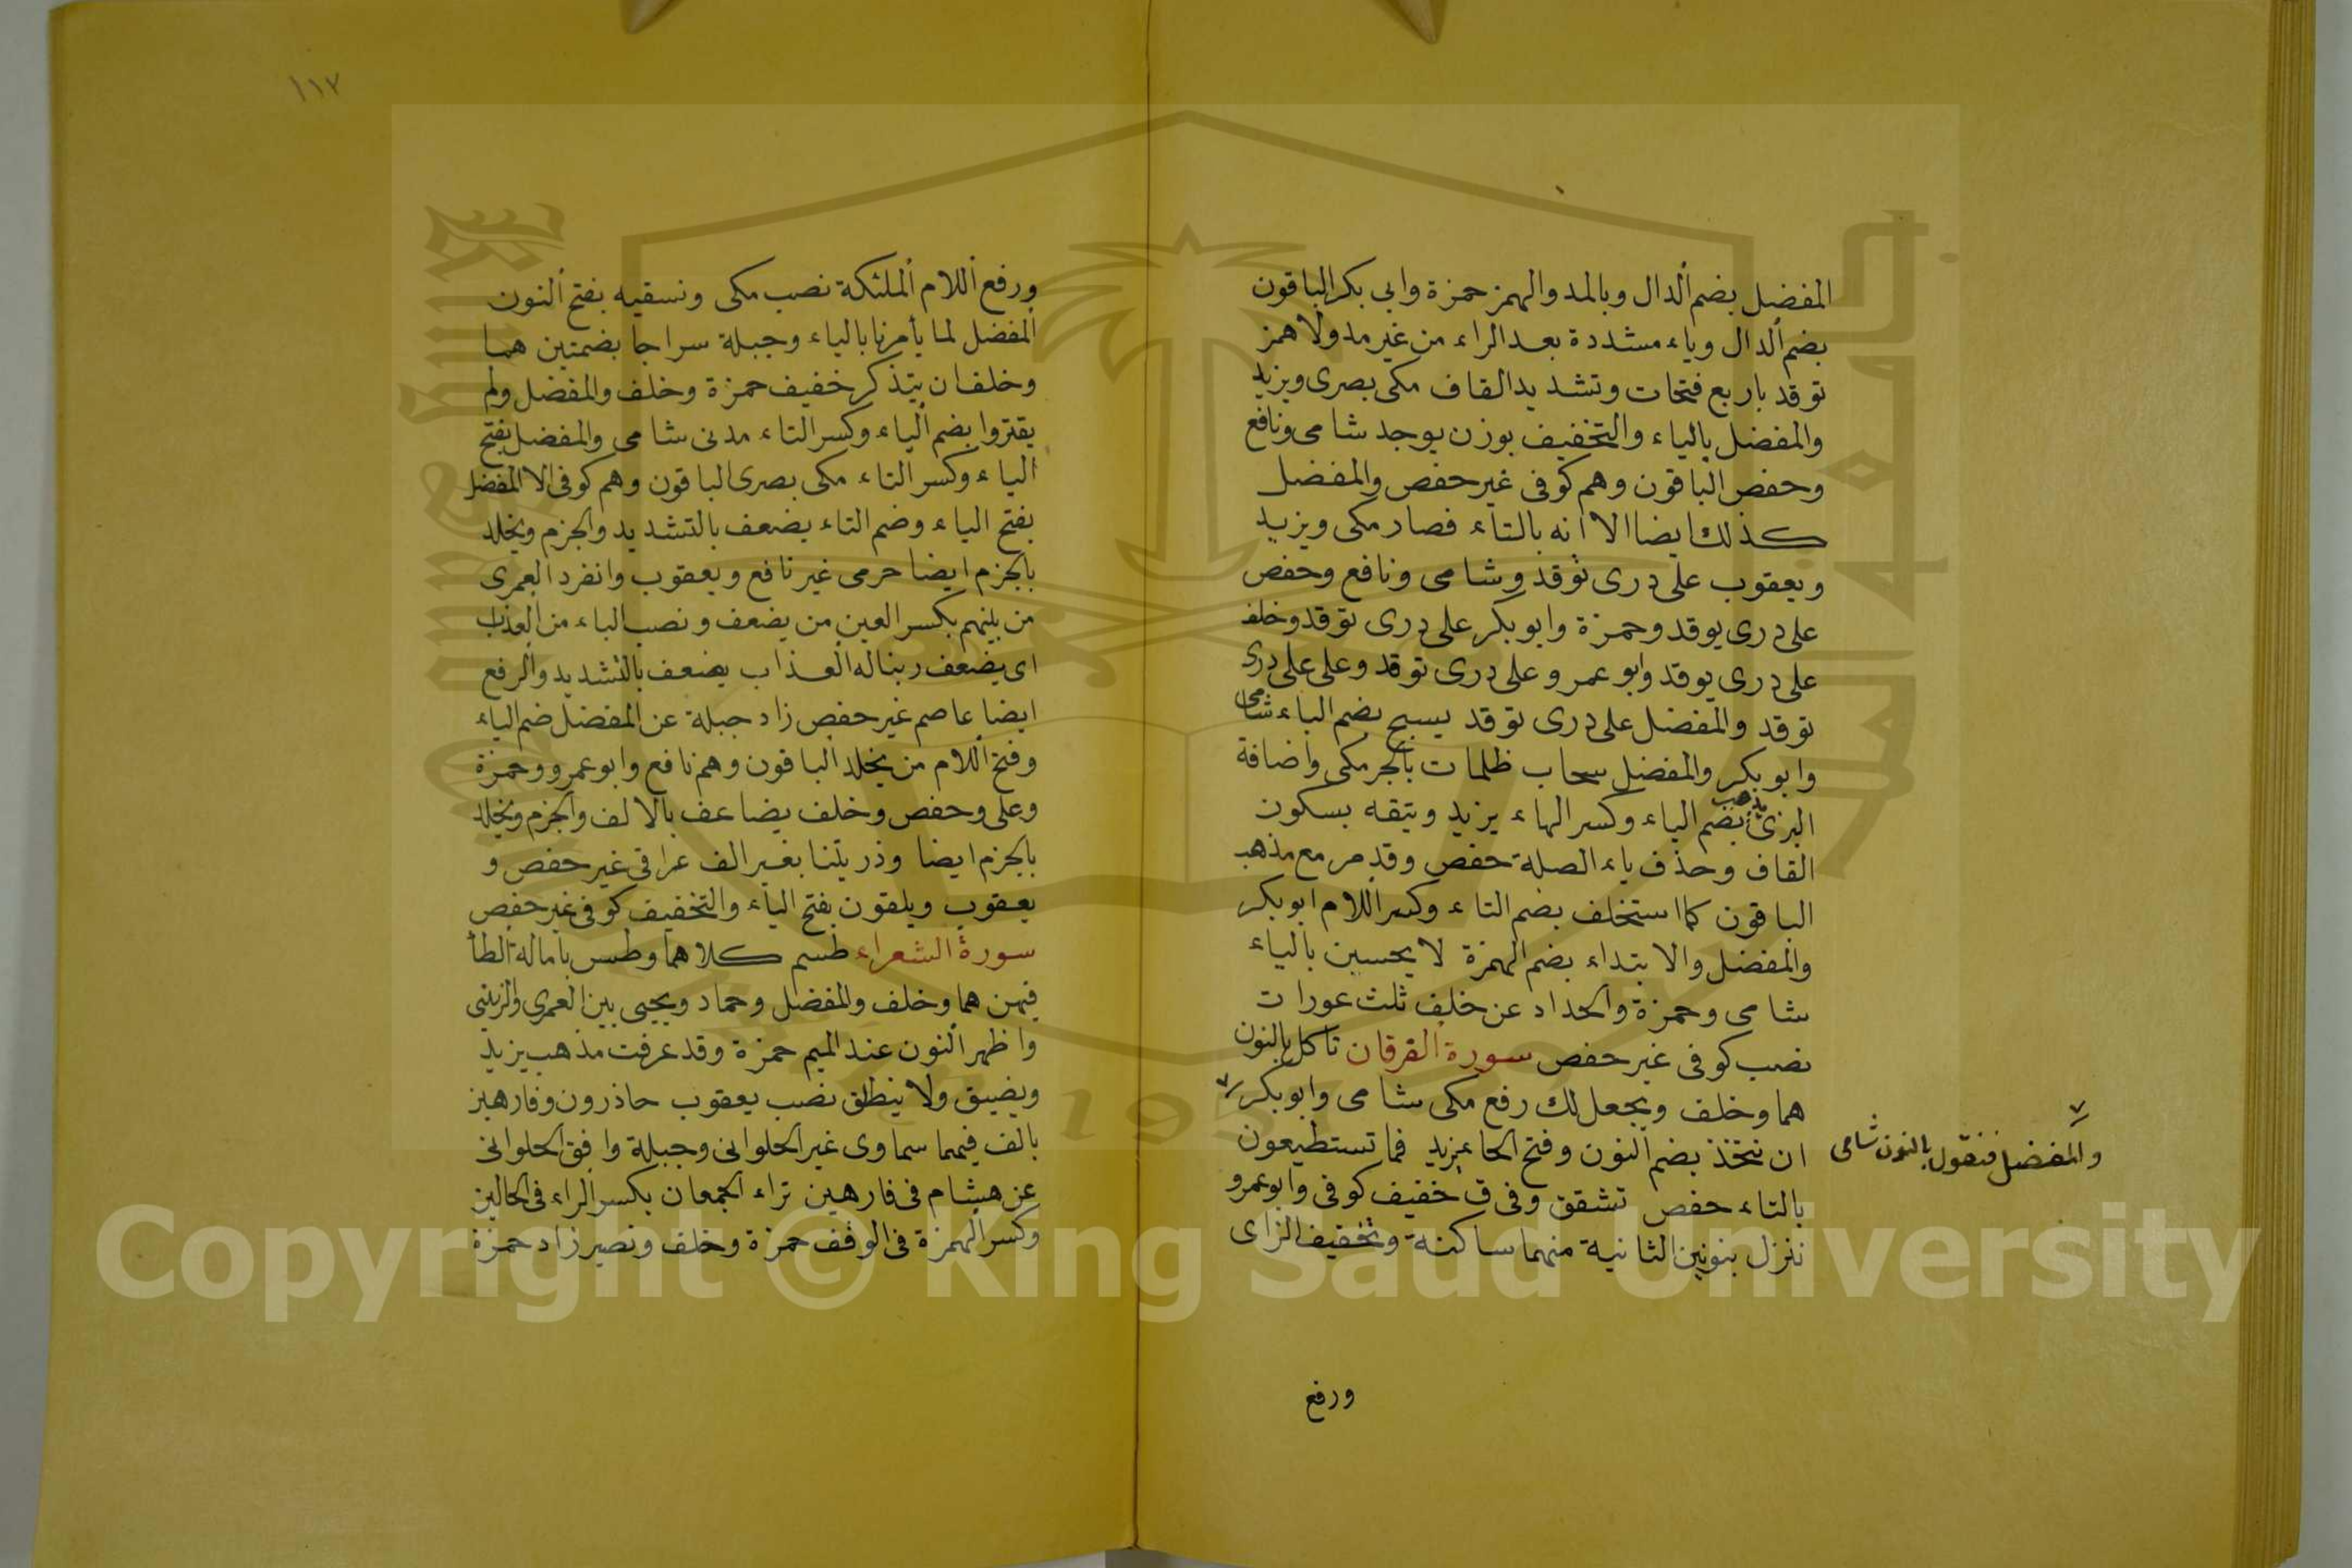 المفضل بضم الدال وبالمد والهمز حمزة وابى بكر الباقون
بضم الدال وياء مشددة بعد الراء من غير مد ولا همز
توقد باربع فتحات وتشديد القاف مكى بصرى ويزيد
والمفضل بالياء والتخفيف بوزن يوجد شامى ونافع
وحفص الباقون وهم كوفى غير حفص والمفضل
كذلك ايضا الا انه بالتاء فصار مكى ويزيد
ويعقوب على درى توقد وشامى ونافع وحفص
على درى يوقد وحمزة وابو بكر على درى توقد وخلف
على درى يوقد وابو عمرو على درى توقد وعلى على درى
توقد والمفضل على درى توقد يسبح بضم الباء شامى
وابو بكر والمفضل سحاب ظلمات بالجر مكى واضافة
البزى يذهب بضم الياء وكسر الهاء يزيد ويتقه بسكون
القاف وحذف ياء الصلة حفص وقد مر مع مذهب
الباقون كما استخلف بضم التاء وكسر اللام ابو بكر
والمفضل والابتداء بضم الهمزة لا يحسبن بالياء
شامى وحمزة والحداد عن خلف ثلث عورات
نصب كوفى غير حفص سورة الفرقان تاكل بالنون
هما وخلف ويجعل لك رفع مكى شامى وابو بكر
والمفضل فنقول بالنون شامى
ان نتخذ بضم النون وفتح الخا يزيد فما تستطيعون
بالتاء حفص تشقق وفى ق خفيف كوفى وابو عمرو
ننزل بنونين الثانية منهما ساكنة وتخفيف الزاى
ورفع
١١٧
ورفع اللام الملئكة نصب مكى ونسقيه بفتح النون
المفضل لما يأمرنا بالياء وجبلة سراجا بضمتين هما
وخلف ان يتذكر خفيف حمزة وخلف والمفضل ولم
يقتروا بضم الياء وكسر التاء مدنى شامى والمفضل بفتح
الياء وكسر التاء مكى بصرى الباقون وهم كوفى الا المفضل
بفتح الياء وضم التاء يضعف بالتشديد والجزم ويخلد
بالجزم ايضا حرمى غير نافع ويعقوب وانفرد العمرى
من بينهم بكسر العين من يضعف ونصب الباء من العذاب
اى يضعف ربنا له العذاب يضعف بالتشديد والرفع
ايضا عاصم غير حفص زاد جبلة عن المفضل ضم الياء
وفتح اللام من يخلد الباقون وهم نافع وابو عمرو وحمزة
وعلى وحفص وخلف يضاعف بالالف والجزم ويخلد
بالجزم ايضا وذريتنا بغير الف عراقى غير حفص و
يعقوب ويلقون بفتح الياء والتخفيف كوفى غير حفص
سورة الشعراء طسم كلاهما وطس بامالة الطا
فيهن هما وخلف والمفضل وحماد ويحيى بين العمرى والزينبى
واظهر النون عند الميم حمزة وقد عرفت مذهب يزيد
ويضيق ولا ينطلق نصب يعقوب حاذرون وفارهين
بالف فيهما سماوى غير الحلوانى وجبلة وافق الحلوانى
عن هشام فى فارهين تراء الجمعان بكسر الراء فى الحالين
وكسر الهمزة فى الوقف حمزة وخلف ونصير زاد حمزة
Copyright © King Saud University